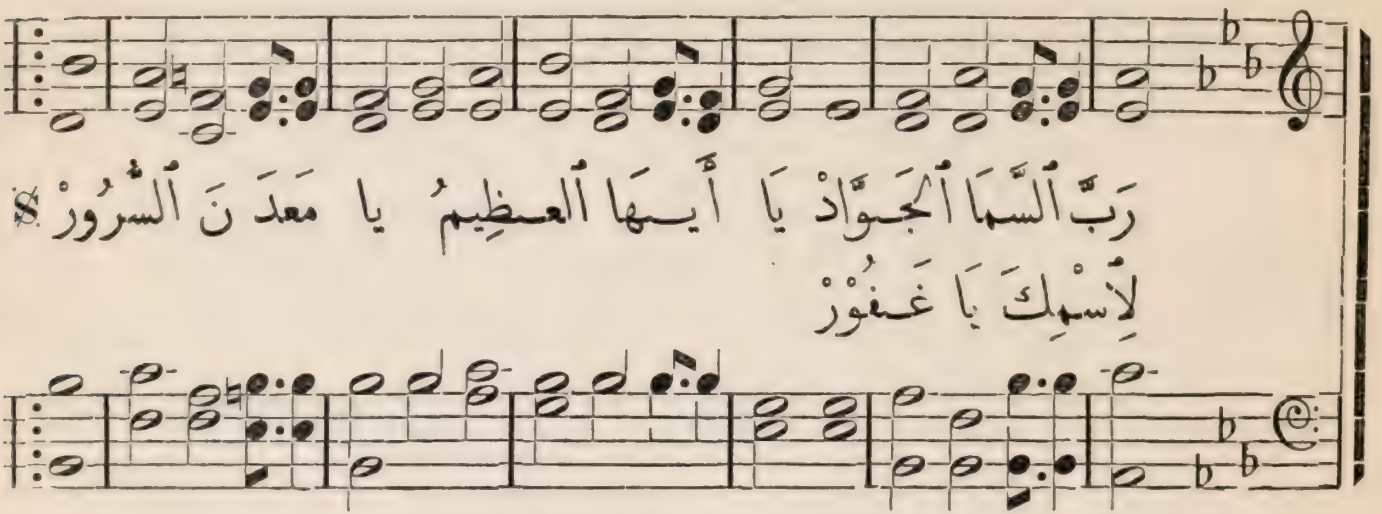 رَبَّ ٱلسَّمَا ٱلْجَوَّادْ يَا أَيــهَا ٱلعــظِيمُ يا مَعدَ نَ ٱلسُّرُورْ
لِٱسْمِكَ يَا غَــفُوْرْ